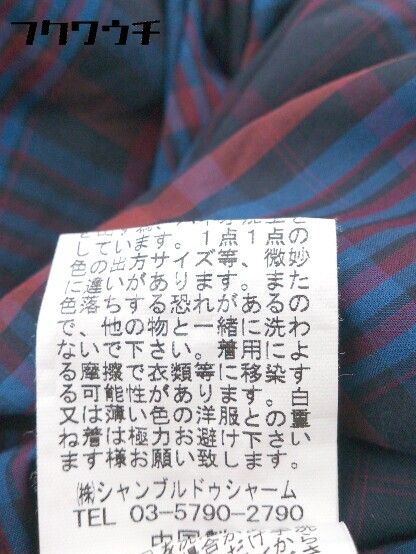 フクワウチ
しています。1点1点の
色の出方サイズ等、微妙
に違いがあります。また
色落ちする恐れがあるの
で、他の物と一緒に洗わ
ないで下さい。着用によ
る摩擦で衣類等に移染す
る可能性があります。白
又は薄い色の洋服との重
ね着は極力お避け下さい
ます様お願い致します。
㈱シャンブルドゥシャーム
TEL 03-5790-2790